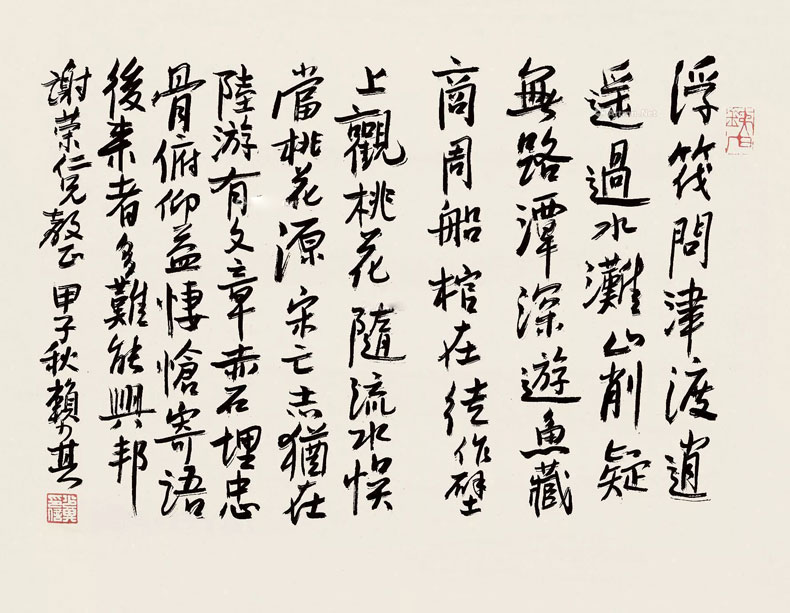 浮筏問津渡逍
遥過水灘山削疑
無路潭深遊魚藏
商周船棺在徒作壁
上觀桃花隨流水悮
當桃花源宋亡志猶在
陸游有文章赤石埋忠
骨俯仰益悽愴寄語
後来者多難能興邦
謝荣仁兄教正甲子秋賴少其